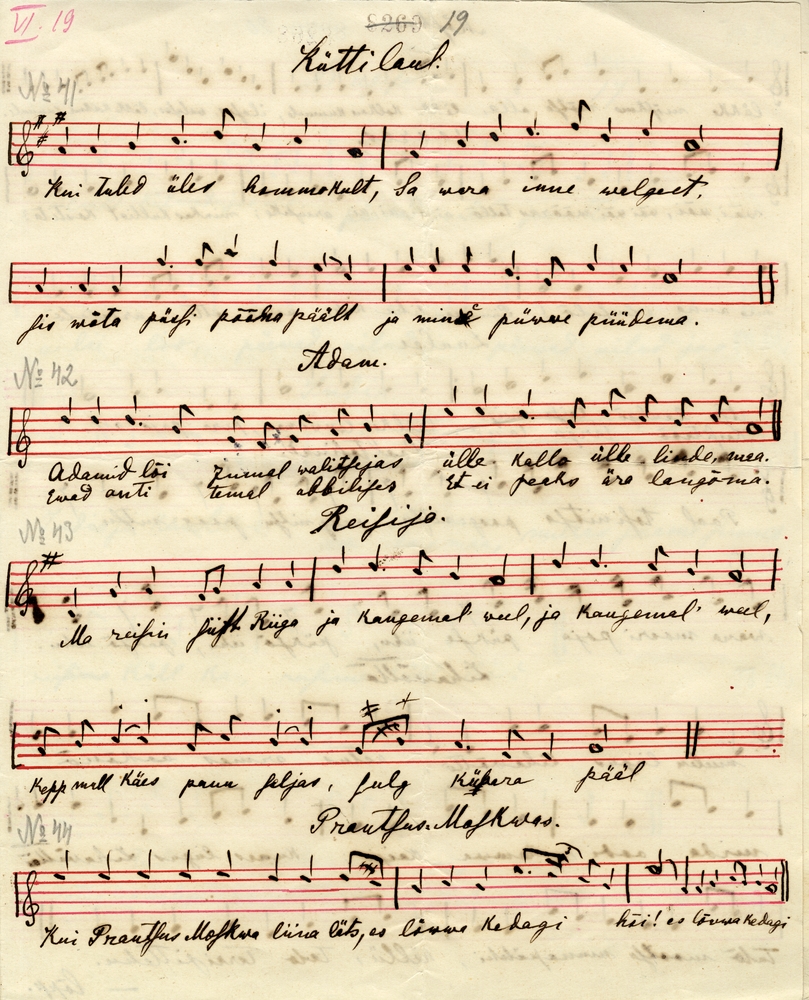 VI. 19
8269 19
Küttilaul.
№ 41
Kui tuled üles hommokult, Sa wara inne walgeet.
sis wõta püssi põõsa päält ja minè püwwe püüdema.
Adam.
№ 42
Adamid lõi Jumal walitsejas ülle kalla ülle linde, maa.
Ewad anti temal abbilises Et ei peaks ära langõma.
Reisija.
№ 43
Ma reisin siist Riiga ja kaugemal weel, ja kaugemal weel,
Kepp mull käes paun seljas, sulg kübara pääl
№ 44
Prantsus Moskwas.
Kui Prantsus Moskwa liina läts, es lõwwa kedagi hõi! es lõwwa kedagi